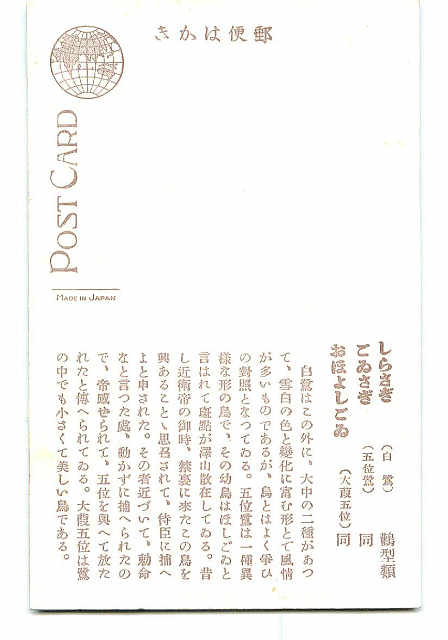 きかは便郵
POST CARD
MADE IN JAPAN
しらさぎ（白鷺）鸛型類
ごゐさぎ（五位鷺）同
おほよしごゐ（大葭五位）同
白鷺はこの外に、大中の二種があつ
て、雪白の色と變化に富む形とで風情
が多いものであるが、烏とはよく爭ひ
の對照となつてゐる。五位鷺は一種異
樣な形の鳥で、その幼鳥はほしごゐと
言はれて斑點が澤山散在してゐる。昔
し近衛帝の御時、禁裏に來たこの鳥を
興あることゝ思召されて、侍臣に捕へ
よと申された。その者近づいて、勅命
なと言つた處、動かずに捕へられたの
で、帝感せられて、五位を與へて放た
れたと傳へられてゐる。大葭五位は鷺
の中でも小さくて美しい鳥である。